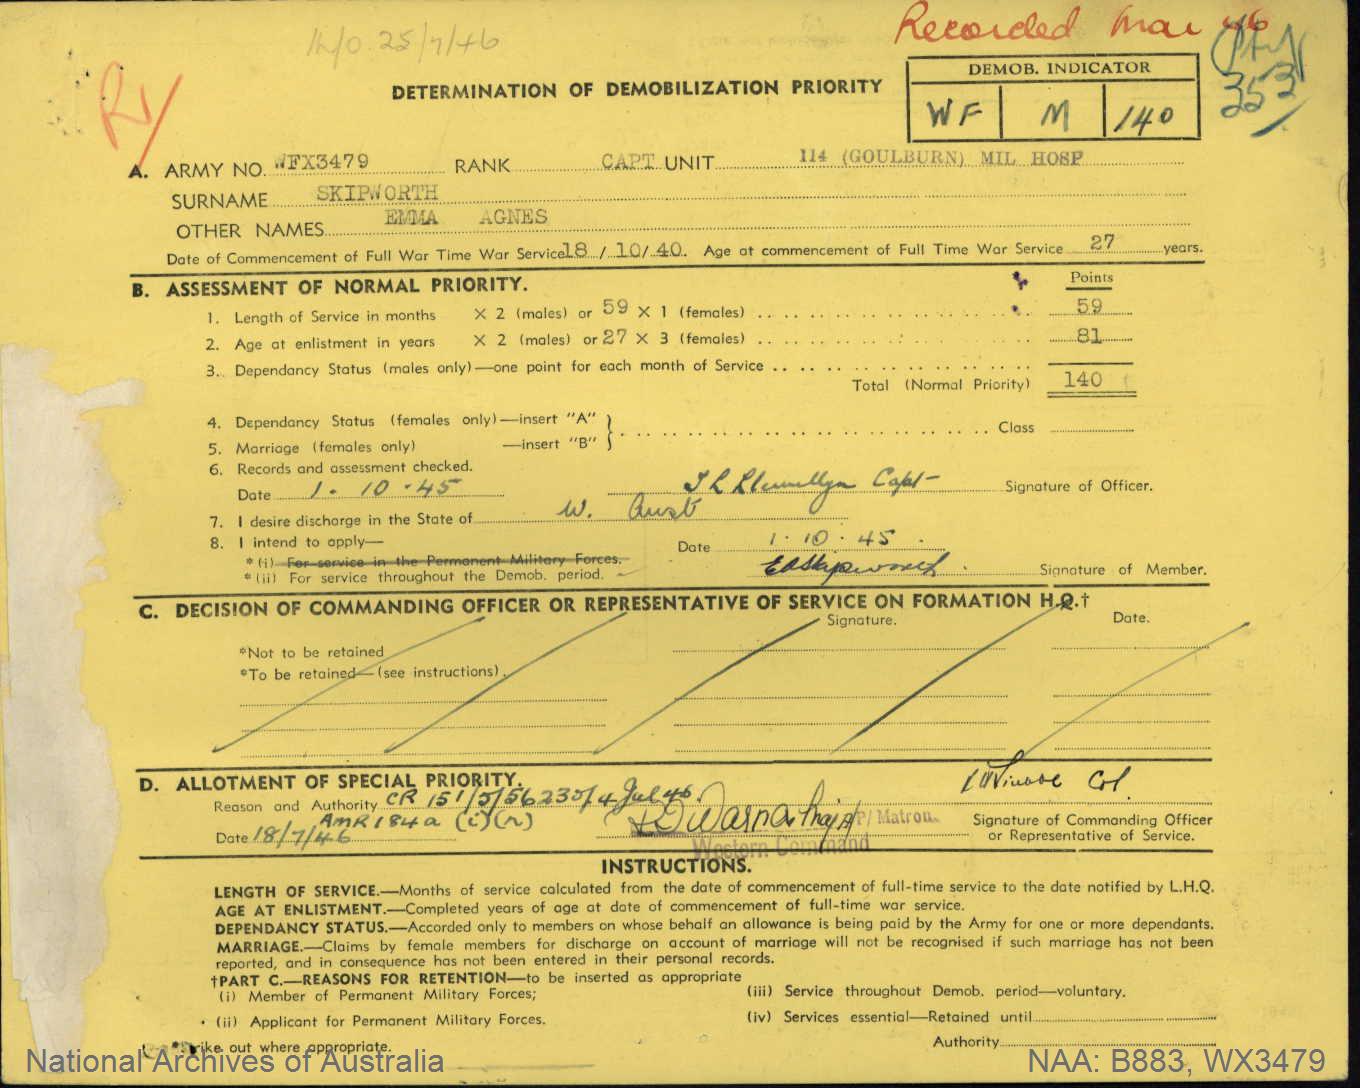 h/o 25/7/46
Recorded Mar 46
353
DETERMINATION OF DEMOBILIZATION PRIORITY
DEMOB. INDICATOR
WF M 140
A. ARMY NO. WFX3479 RANK CAPT UNIT 114 (GOULBURN) MIL HOSP
SURNAME SKIPWORTH
OTHER NAMES EMMA AGNES
Date of Commencement of Full War Time War Service 18 / 10/ 40. Age at commencement of Full Time War Service 27 years.
B. ASSESSMENT OF NORMAL PRIORITY.
Points
1. Length of Service in months × 2 (males) or 59 × 1 (females) 59
2. Age at enlistment in years × 2 (males) or 27 × 3 (females) 81
3. Dependancy Status (males only)—one point for each month of Service
Total (Normal Priority) 140
4. Dependancy Status (females only)—insert "A"
Class
5. Marriage (females only) —insert "B"
6. Records and assessment checked.
Date 1. 10 .45 Llewellyn Capt Signature of Officer.
7. I desire discharge in the State of W. Aust
8. I intend to apply—
Date 1. 10. 45.
*(i) For service in the Permanent Military Forces.
*(ii) For service throughout the Demob. period. EASkipworth. Signature of Member.
C. DECISION OF COMMANDING OFFICER OR REPRESENTATIVE OF SERVICE ON FORMATION H.Q.†
Signature. Date.
*Not to be retained
*To be retained—(see instructions).
D. ALLOTMENT OF SPECIAL PRIORITY.
Col.
Reason and Authority CR 151/5/56235/4 Jul 46.
AMR 184a (i)(r)
Date 18/7/46
P/ Matron.
Western Command
Signature of Commanding Officer
or Representative of Service.
INSTRUCTIONS.
LENGTH OF SERVICE.—Months of service calculated from the date of commencement of full-time service to the date notified by L.H.Q.
AGE AT ENLISTMENT.—Completed years of age at date of commencement of full-time war service.
DEPENDANCY STATUS.—Accorded only to members on whose behalf an allowance is being paid by the Army for one or more dependants.
MARRIAGE.—Claims by female members for discharge on account of marriage will not be recognised if such marriage has not been
reported, and in consequence has not been entered in their personal records.
†PART C.—REASONS FOR RETENTION—to be inserted as appropriate
(i) Member of Permanent Military Forces;
(iii) Service throughout Demob. period—voluntary.
(ii) Applicant for Permanent Military Forces.
(iv) Services essential—Retained until
rike out where appropriate.
Authority
National Archives of Australia
NAA: B883, WX3479